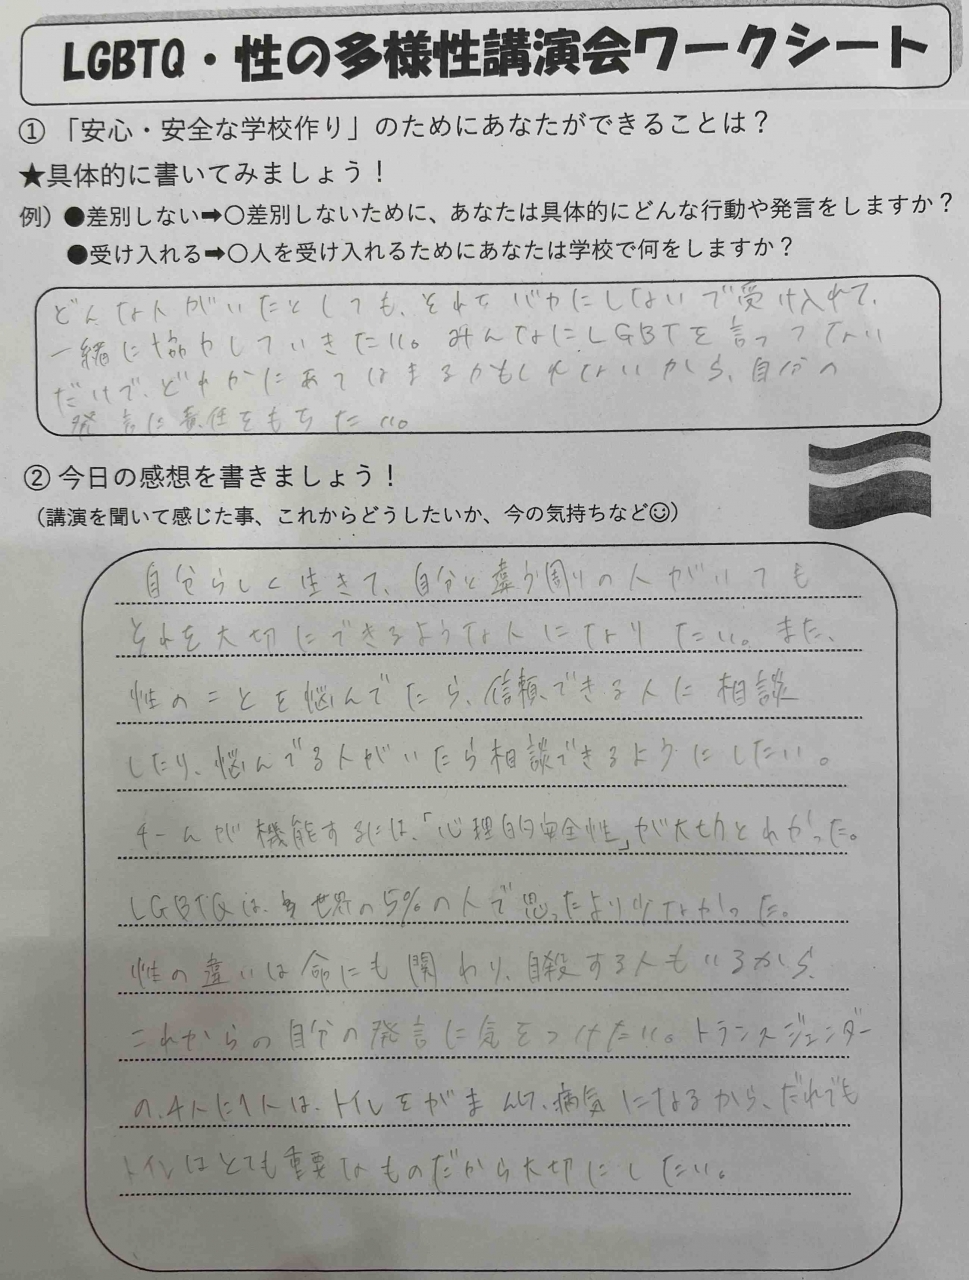 LGBTQ・性の多様性講演会ワークシート
①「安心・安全な学校作り」のためにあなたができることは？
★具体的に書いてみましょう！
例）●差別しない➡〇差別しないために、あなたは具体的にどんな行動や発言をしますか？
●受け入れる➡〇人を受け入れるためにあなたは学校で何をしますか？
どんな人がいたとしても、それをバカにしないで受け入れて、
一緒に協力していきたい。みんなにLGBTを言ってない
だけで、どれかにあてはまるかもしれないから、自分の
発言に責任をもちたい。
②今日の感想を書きましょう！
（講演を聞いて感じた事、これからどうしたいか、今の気持ちなど☺）
自分らしく生きて、自分と違う周りの人がいても
それを大切にできるような人になりたい。また、
性のことを悩んでたら、信頼できる人に相談
したり、悩んでる人がいたら相談できるようにしたい。
チームが機能するには、「心理的安全性」が大切とわかった。
LGBTQは、世界の5%の人で思ったより少なかった。
性の違いは命にも関わり、自殺する人もいるから、
これからの自分の発言に気をつけたい。トランスジェンダー
の、4人に1人は、トイレをがまんして、病気になるから、だれでも
トイレはとても重要なものだから大切にしたい。